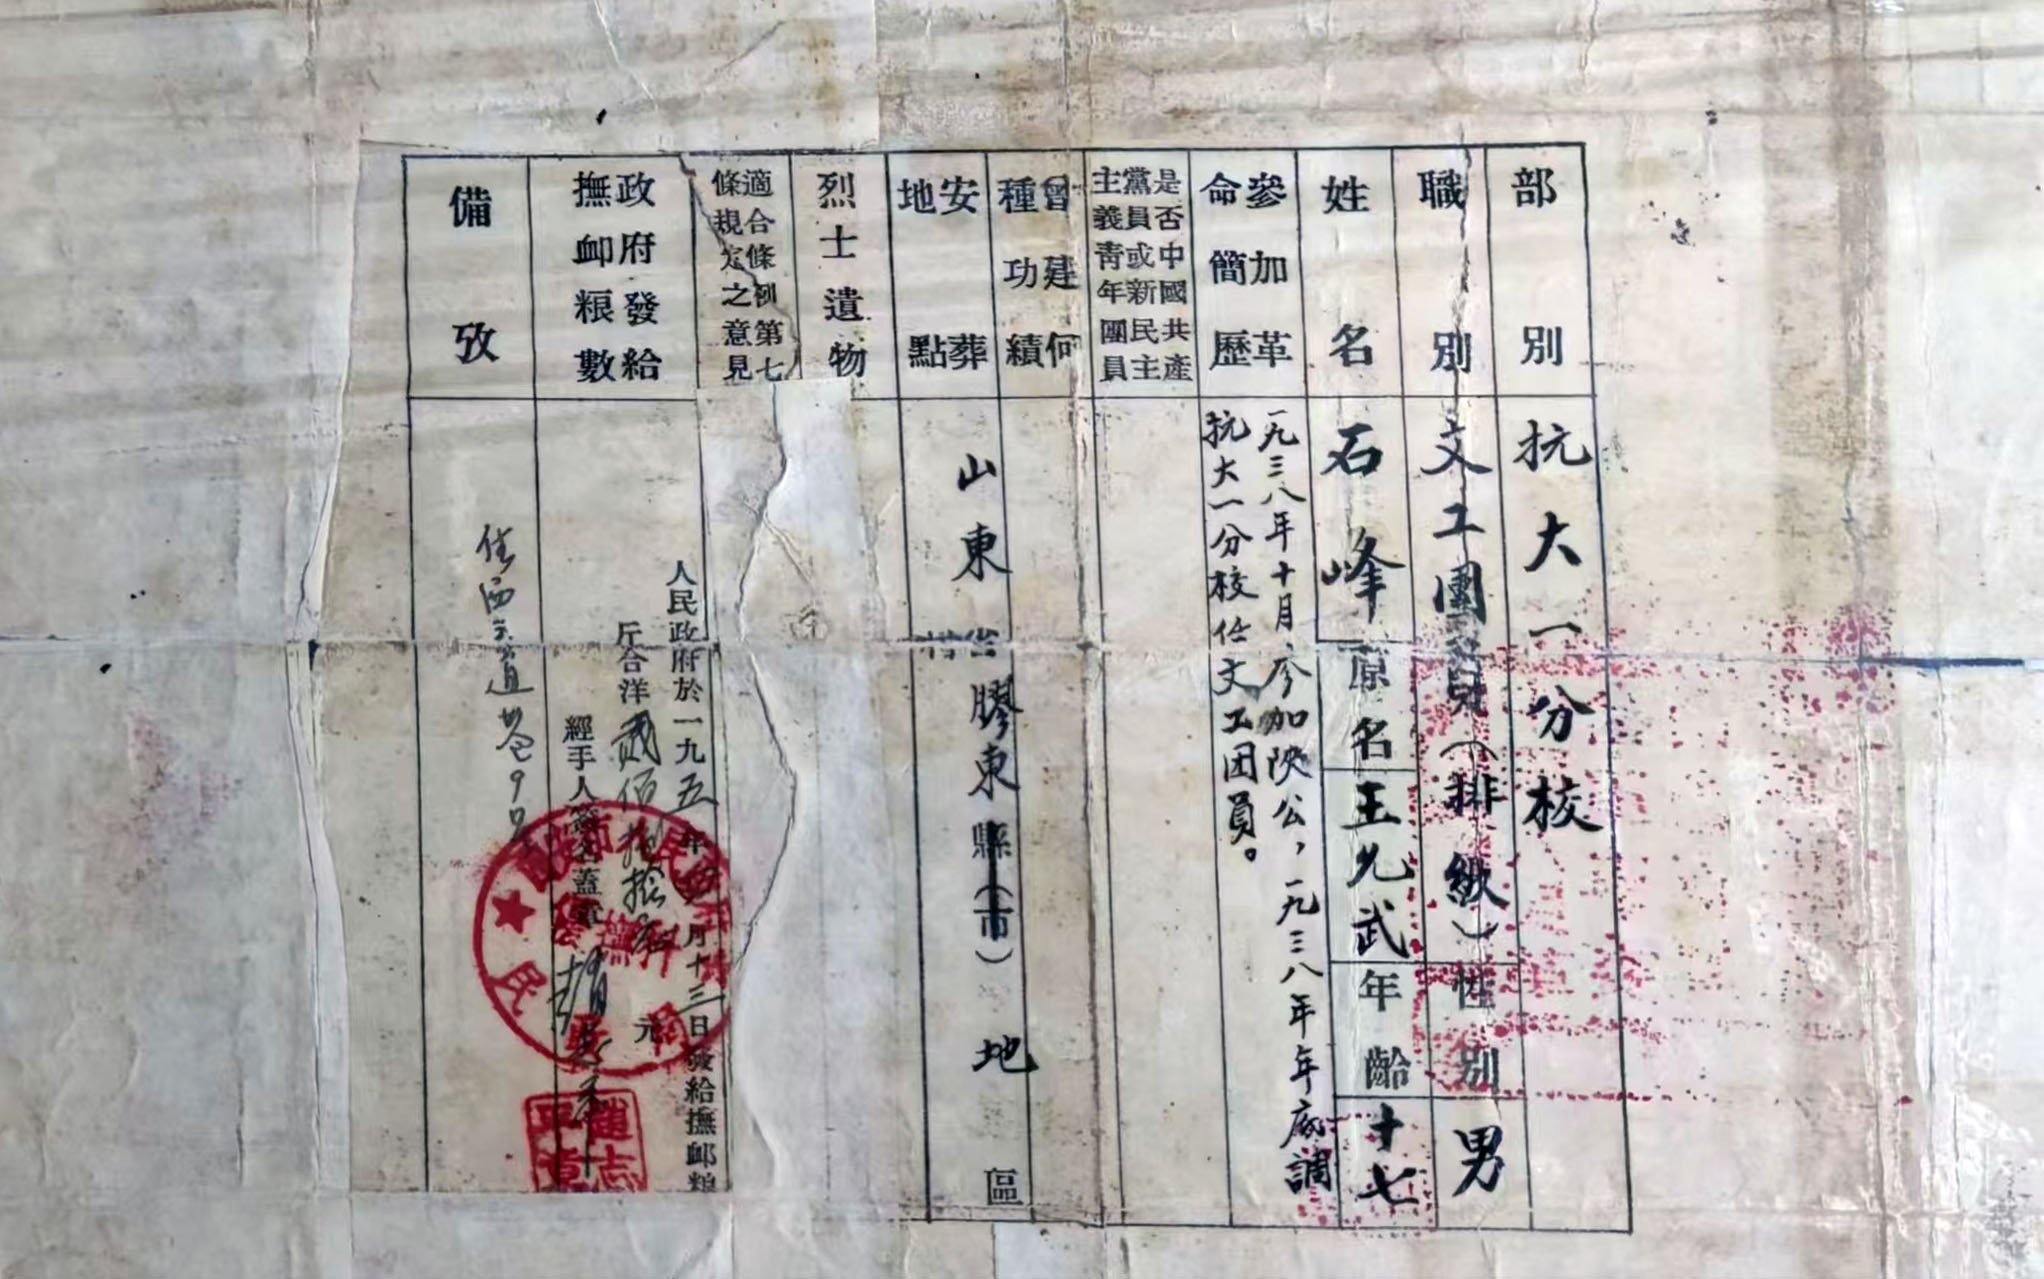 部別
抗大一分校
職別
文工團團員（排級）
性別
男
姓名
石峰
原名
王允武
年齡
十七
參加革
命簡歷
一九三八年十月，參加陝公，一九三八年年底調
抗大一分校任文工团員。
是否中國共產
黨員或新民主
主義青年團員
曾建何
種功績
安葬
地點
山東省膠東縣（市）
地區
烈士遺物
適合條例第七
條規定之意見
政府發給
撫卹粮數
人民政府於一九五年月十三日發給撫卹粮
斤合洋貳佰元
經手人簽名蓋章
備攷
9号